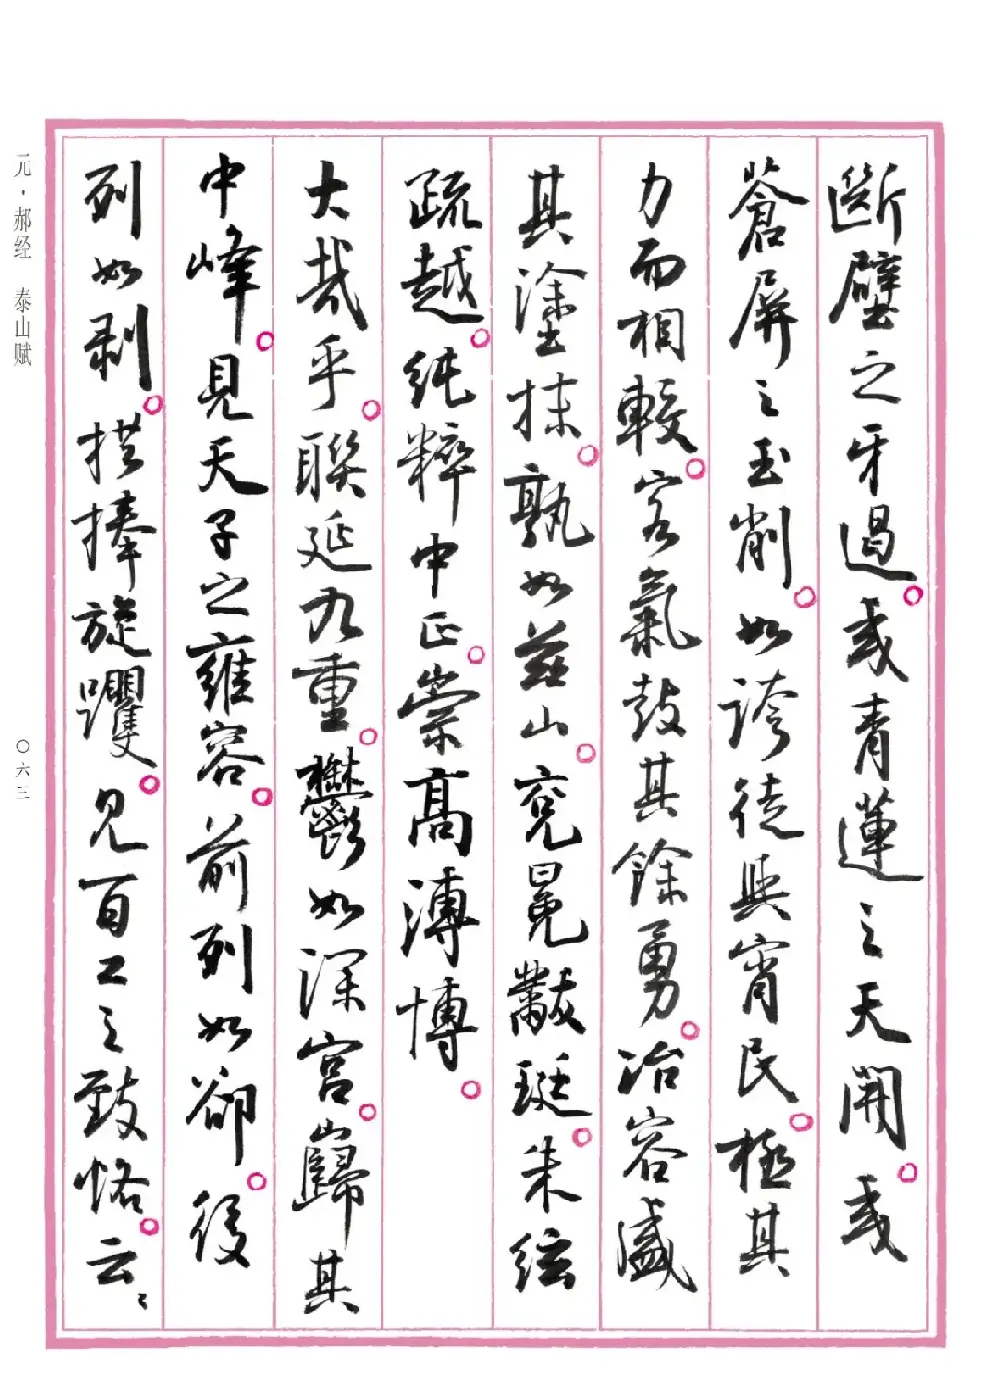 斷壁之牙過。或青蓮之天開。或
蒼屏之玉削。如誇徒與宵民。極其
力而相較。客氣鼓其餘勇。冶容盛
其塗抹。孰如茲山。袞冕黻珽。朱紘
疏越。純粹中正。崇高溥博。
大哉乎。聯延九重。鬱如深宮。巋其
中峰。見天子之雍容。前列如卻。後
列如剥。拱捧旋躩。見百工之致恪。云云
元·郝经 泰山赋
〇六三